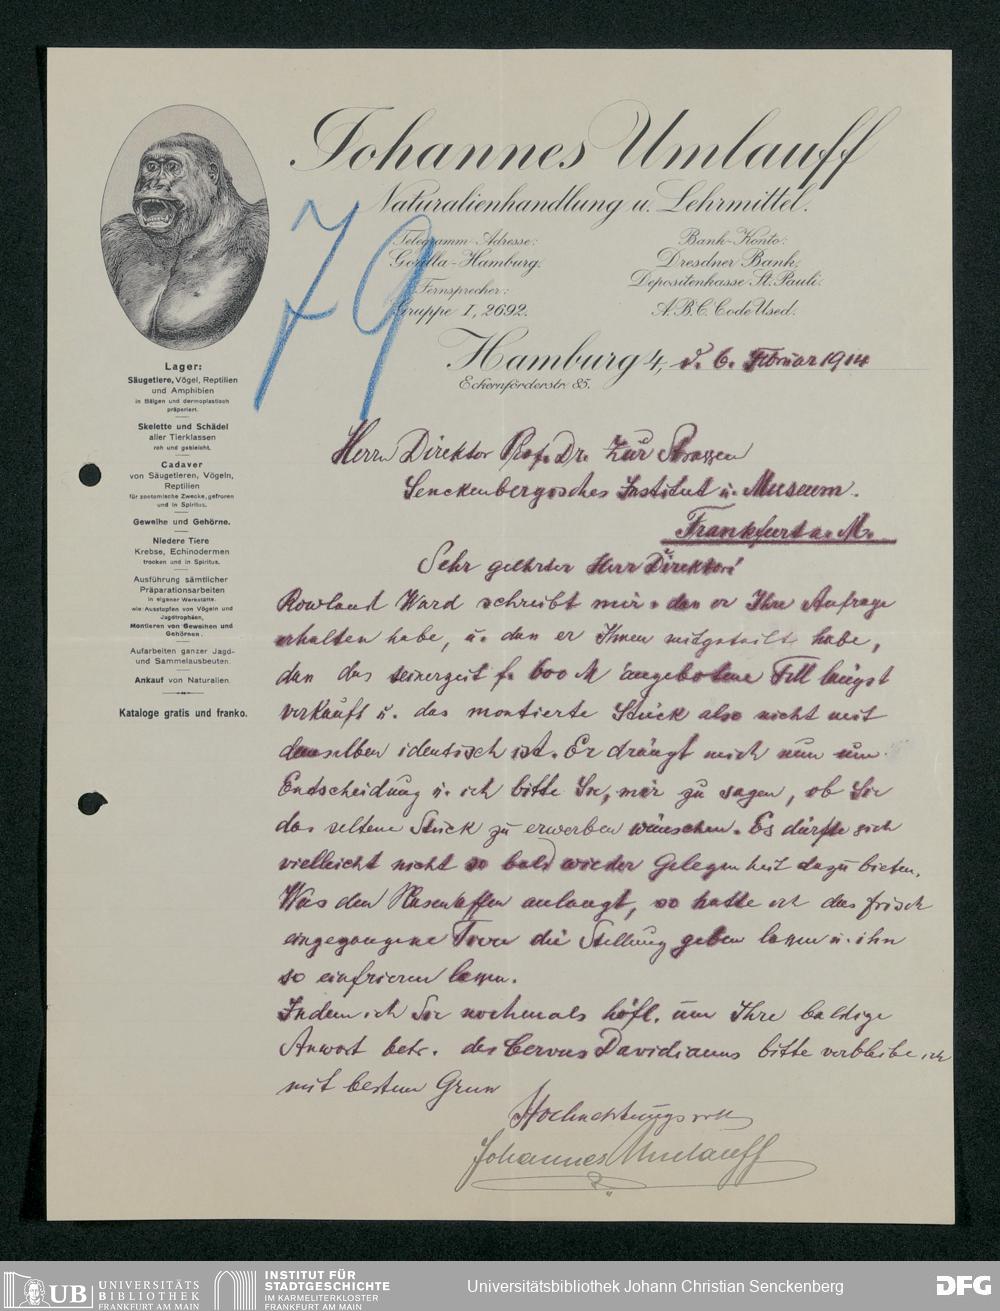 Johannes Umlauff
Naturalienhandlung u. Lehrmittel.
Telegramm-Adresse:
Gorilla-Hamburg.
Fernsprecher:
Gruppe I, 2692.
Bank-Konto:
Dresdner Bank.
Depositenkasse St. Pauli.
A.B.C. Code Used.
79
Hamburg 4, d. 6. Februar 1914
Eckernförderstr. 85.
Lager:
Säugetiere, Vögel, Reptilien
und Amphibien
in Bälgen und dermoplastisch
präpariert.
Skelette und Schädel
aller Tierklassen
roh und gebleicht.
Cadaver
von Säugetieren, Vögeln,
Reptilien
für zootomische Zwecke, gefroren
und in Spiritus.
Geweihe und Gehörne.
Niedere Tiere
Krebse, Echinodermen
trocken und in Spiritus.
Ausführung sämtlicher
Präparationsarbeiten
in eigener Werkstätte.
wie Ausstopfen von Vögeln und
Jagdtrophäen,
Montieren von Geweihen und
Gehörnen.
Aufarbeiten ganzer Jagd-
und Sammelausbeuten.
Ankauf von Naturalien.
Kataloge gratis und franko.
Herrn Direktor Prof. Dr. Zur Strassen
Senckenbergisches Institut u. Museum.
Frankfurt a. M.
Sehr geehrter Herr Direktor!
Rowland Ward schreibt mir, dass er Ihre Anfrage
erhalten habe, u. dass er Ihnen mitgeteilt habe,
dass das seinerzeit f. 600 M angebotene Fell längst
verkauft u. das montierte Stück also nicht mit
demselben identisch ist. Er drängt mich nun um
Entscheidung u. ich bitte Sie, mir zu sagen, ob Sie
das seltene Stück zu erwerben wünschen. Es dürfte sich
vielleicht nicht so bald wieder Gelegenheit dazu bieten.
Was den Nasenaffen anlangt, so hatte ich das frisch
eingegangene Tier die Stellung geben lassen u. ihn
so einfrieren lassen.
Indem ich Sie nochmals höfl. um Ihre baldige
Anwort betr. des Cervus Davidianus bitte verbleibe ich
mit bestem Gruss
Hochachtungsvoll
Johannes Umlauff
UB UNIVERSITÄTS
BIBLIOTHEK
FRANKFURT AM MAIN
INSTITUT FÜR
STADTGESCHICHTE
IM KARMELITERKLOSTER
FRANKFURT AM MAIN
Universitätsbibliothek Johann Christian Senckenberg
DFG